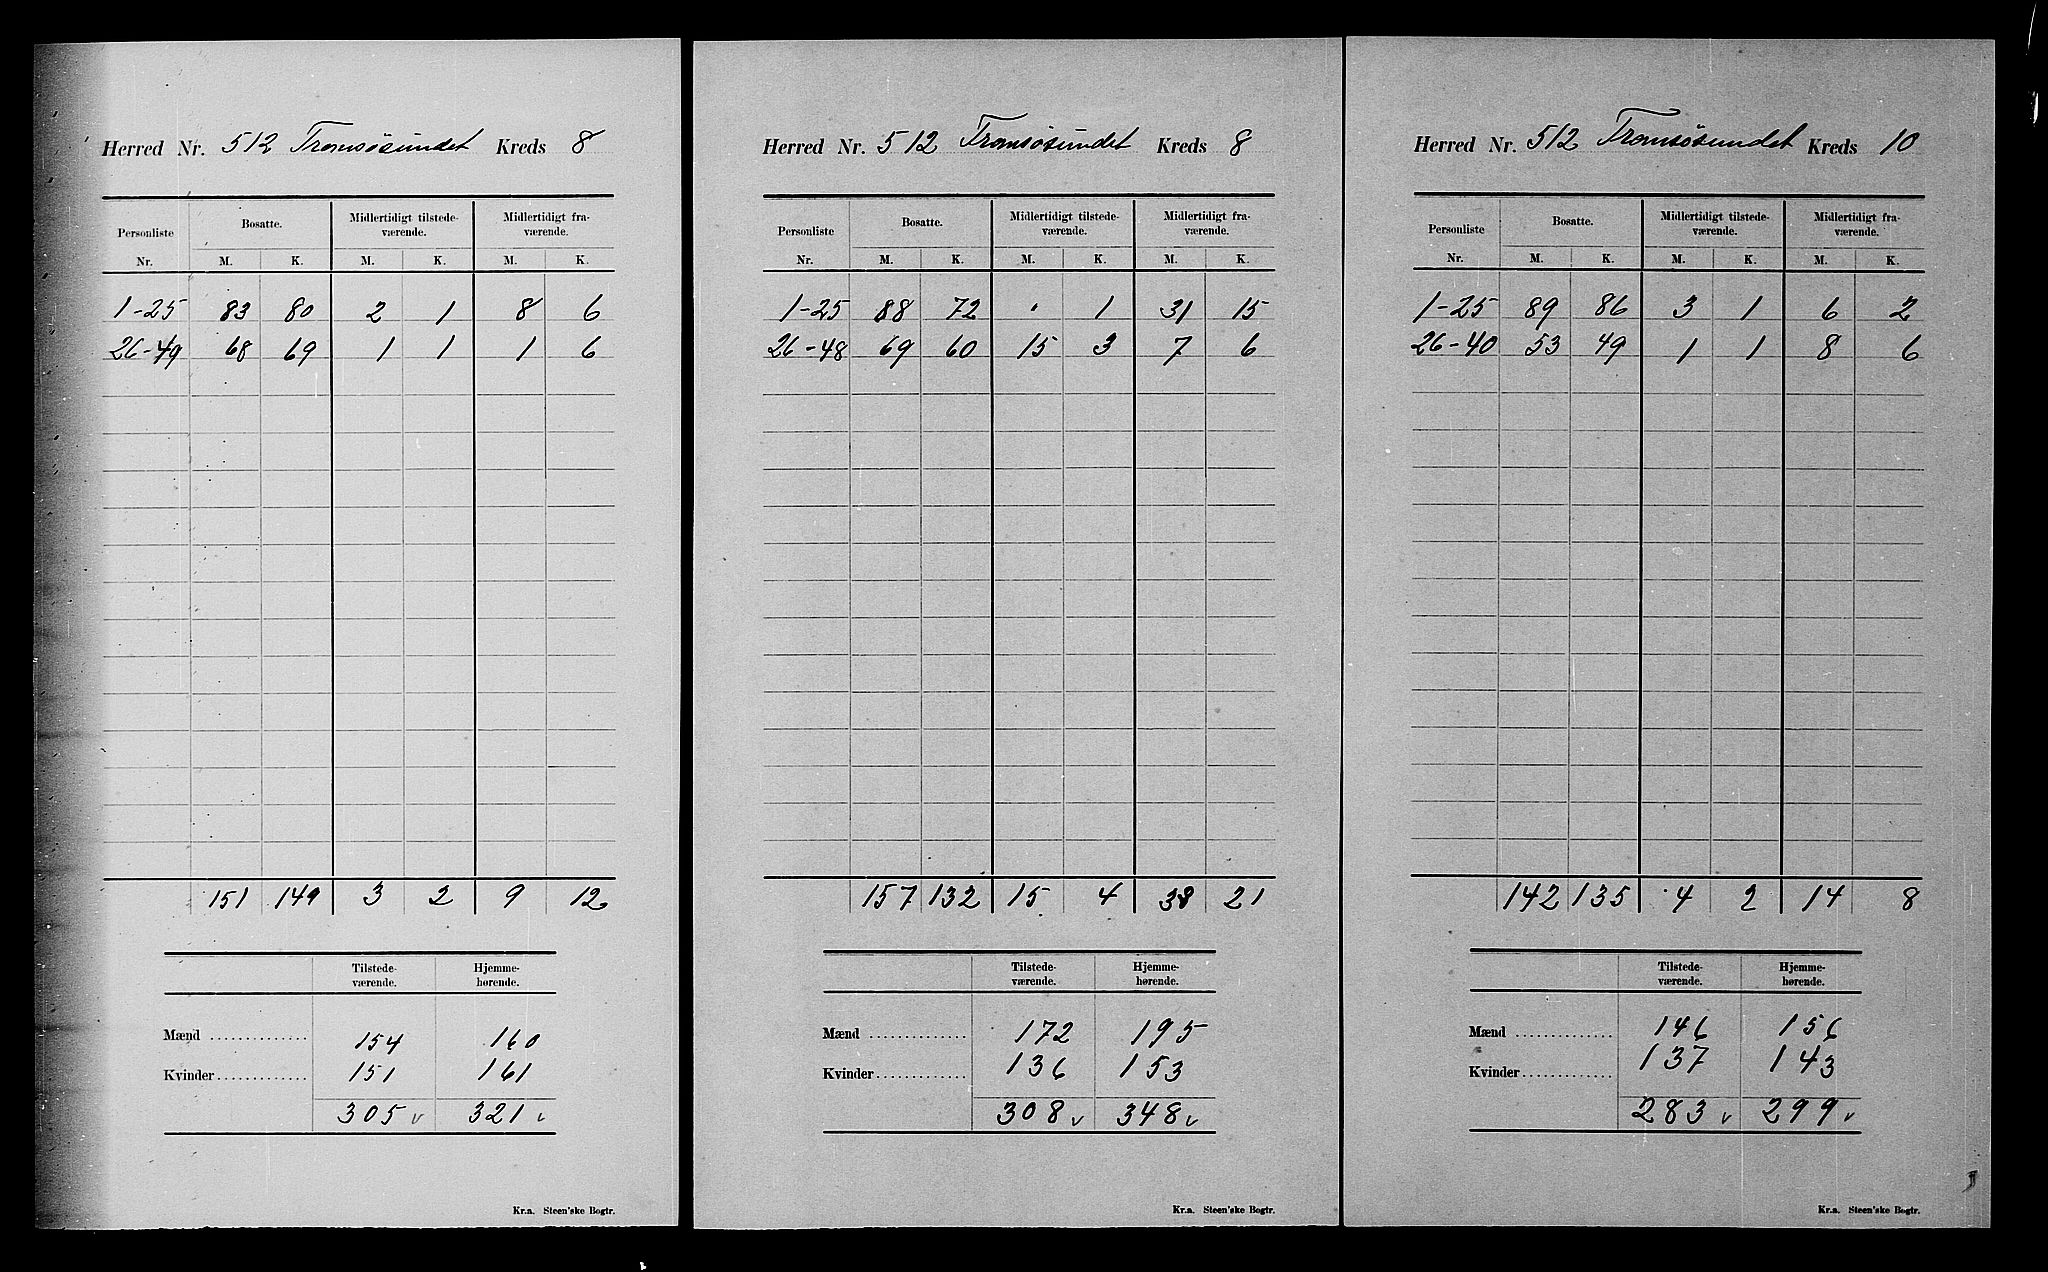 Herred Nr. 512 Tromsösundet Kreds 8
Personliste Bosatte. Midlertidigt tilstede- Midlertidigt fra-
værende. værende.
Nr. M. K. M. K. M. K.
1-25 83 80 2 1 8 6
26-49 68 69 1 1 1 6
151 149 3 2 9 12
Tilstede- Hjemme-
værende. hørende.
Mænd 154 160
Kvinder 151 161
305 v 321 v
Kr.a. Steen'ske Bogtr.
Herred Nr. 512 Tromsösundet Kreds 8
Personliste Bosatte. Midlertidigt tilstede- Midlertidigt fra-
værende. værende.
Nr. M. K. M. K. M. K.
1-25 88 72 . 1 31 15
26-48 69 60 15 3 7 6
157 132 15 4 38 21
Tilstede- Hjemme-
værende. hørende.
Mænd 172 195
Kvinder 136 153
308 v 348 v
Kr.a. Steen'ske Bogtr.
Herred Nr. 512 Tromsösundet Kreds 10
Personliste Bosatte. Midlertidigt tilstede- Midlertidigt fra-
værende. værende.
Nr. M. K. M. K. M. K.
1-25 89 86 3 1 6 2
26-40 53 49 1 1 8 6
142 135 4 2 14 8
Tilstede- Hjemme-
værende. hørende.
Mænd 146 156
Kvinder 137 143
283 v 299 v
Kr.a. Steen'ske Bogtr.